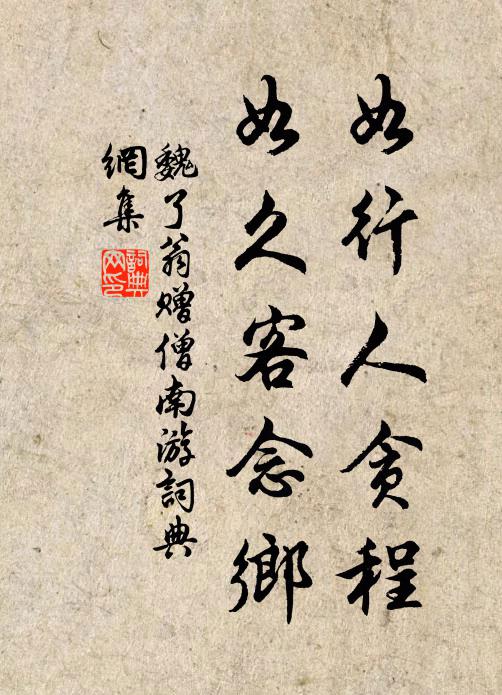 如行人贪程
如久客念鄉
魏了翁赠僧南游詞典
網集
詞典
网印